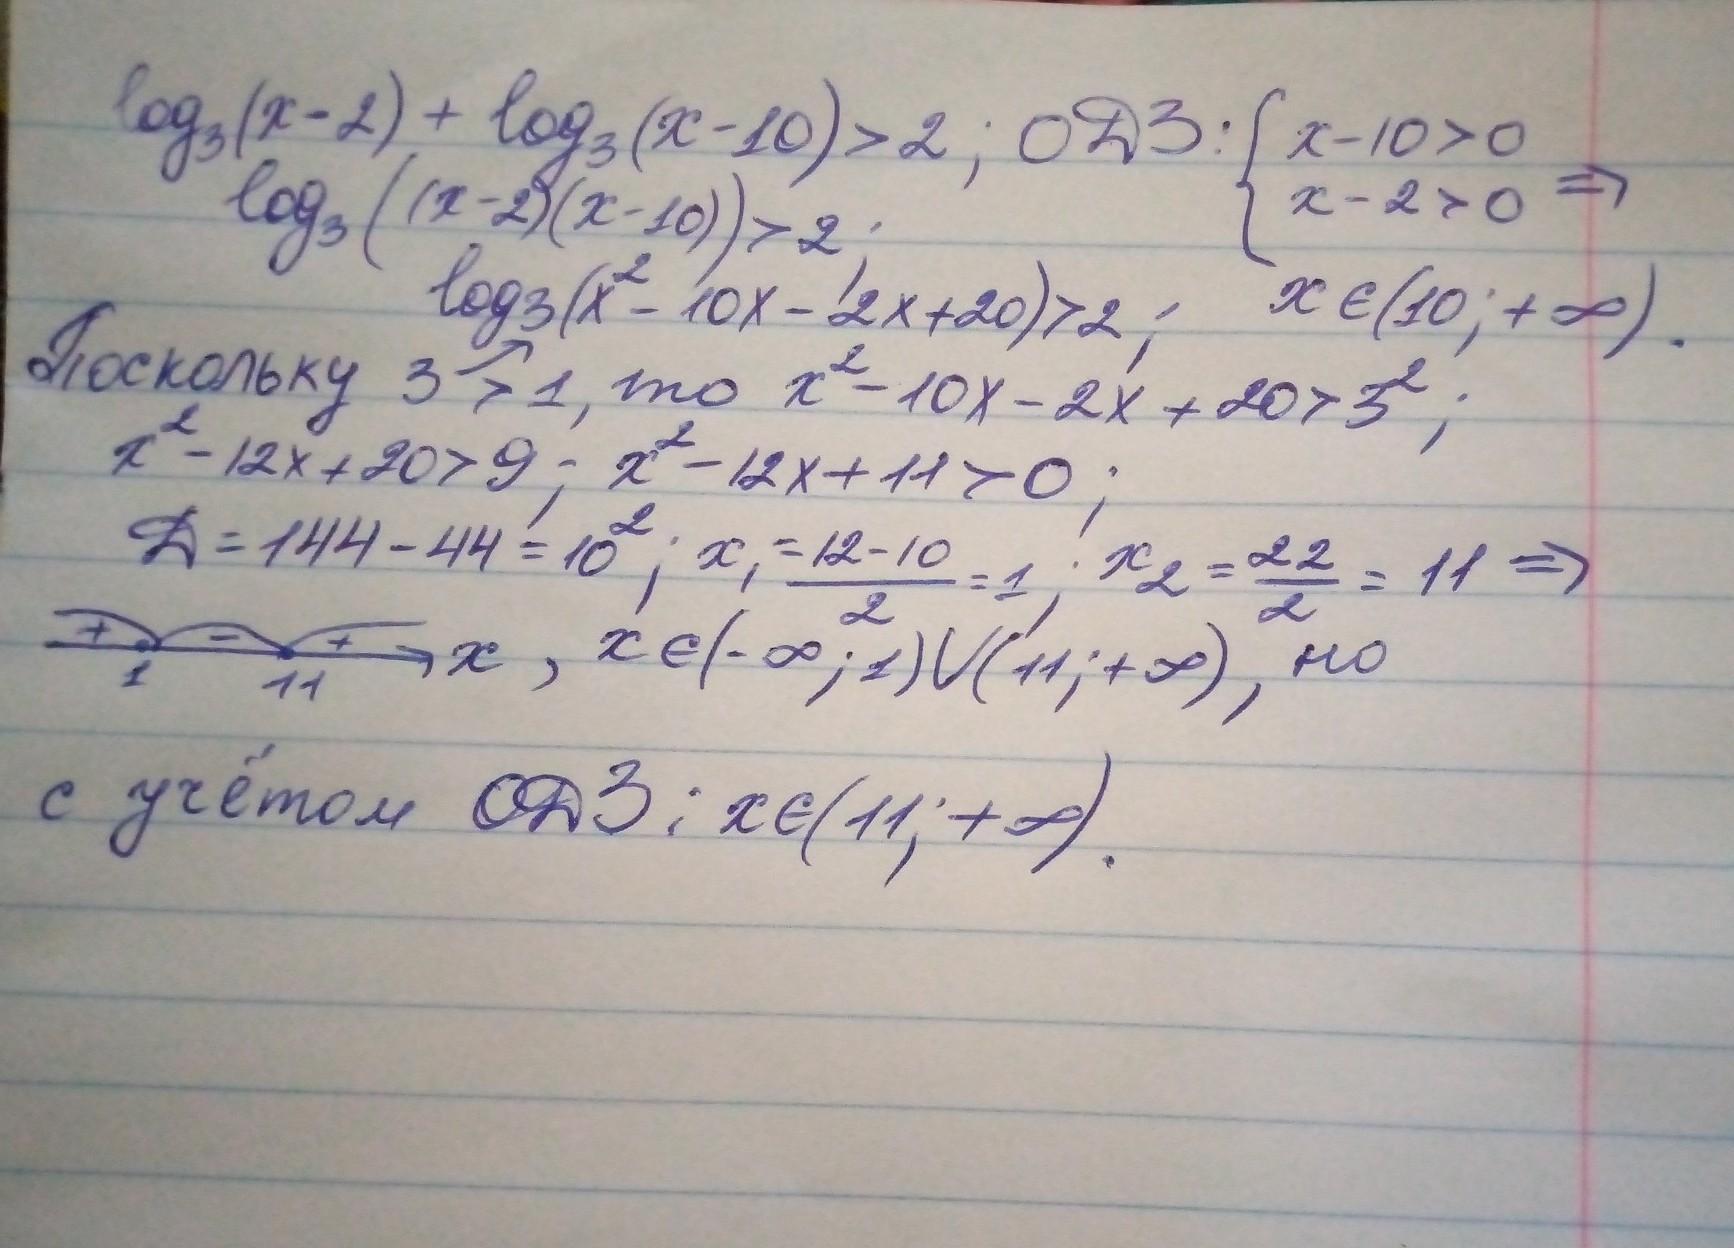 log₃(x-2) + log₃(x-10)>2; ОДЗ: { x-10>0
log₃((x-2)(x-10))>2; x-2>0 ⇒
log₃(x²-10x-2x+20)>2; x∈(10;+∞).
Поскольку 3>1, то x²-10x-2x+20>3²;
x²-12x+20>9; x²-12x+11>0;
Д=144-44=10²; x₁=12-10/2=1; x₂=22/2=11⇒
+ - + 1 11 x, x∈(-∞;1)∪(11;+∞), но
с учётом ОДЗ: x∈(11;+∞).